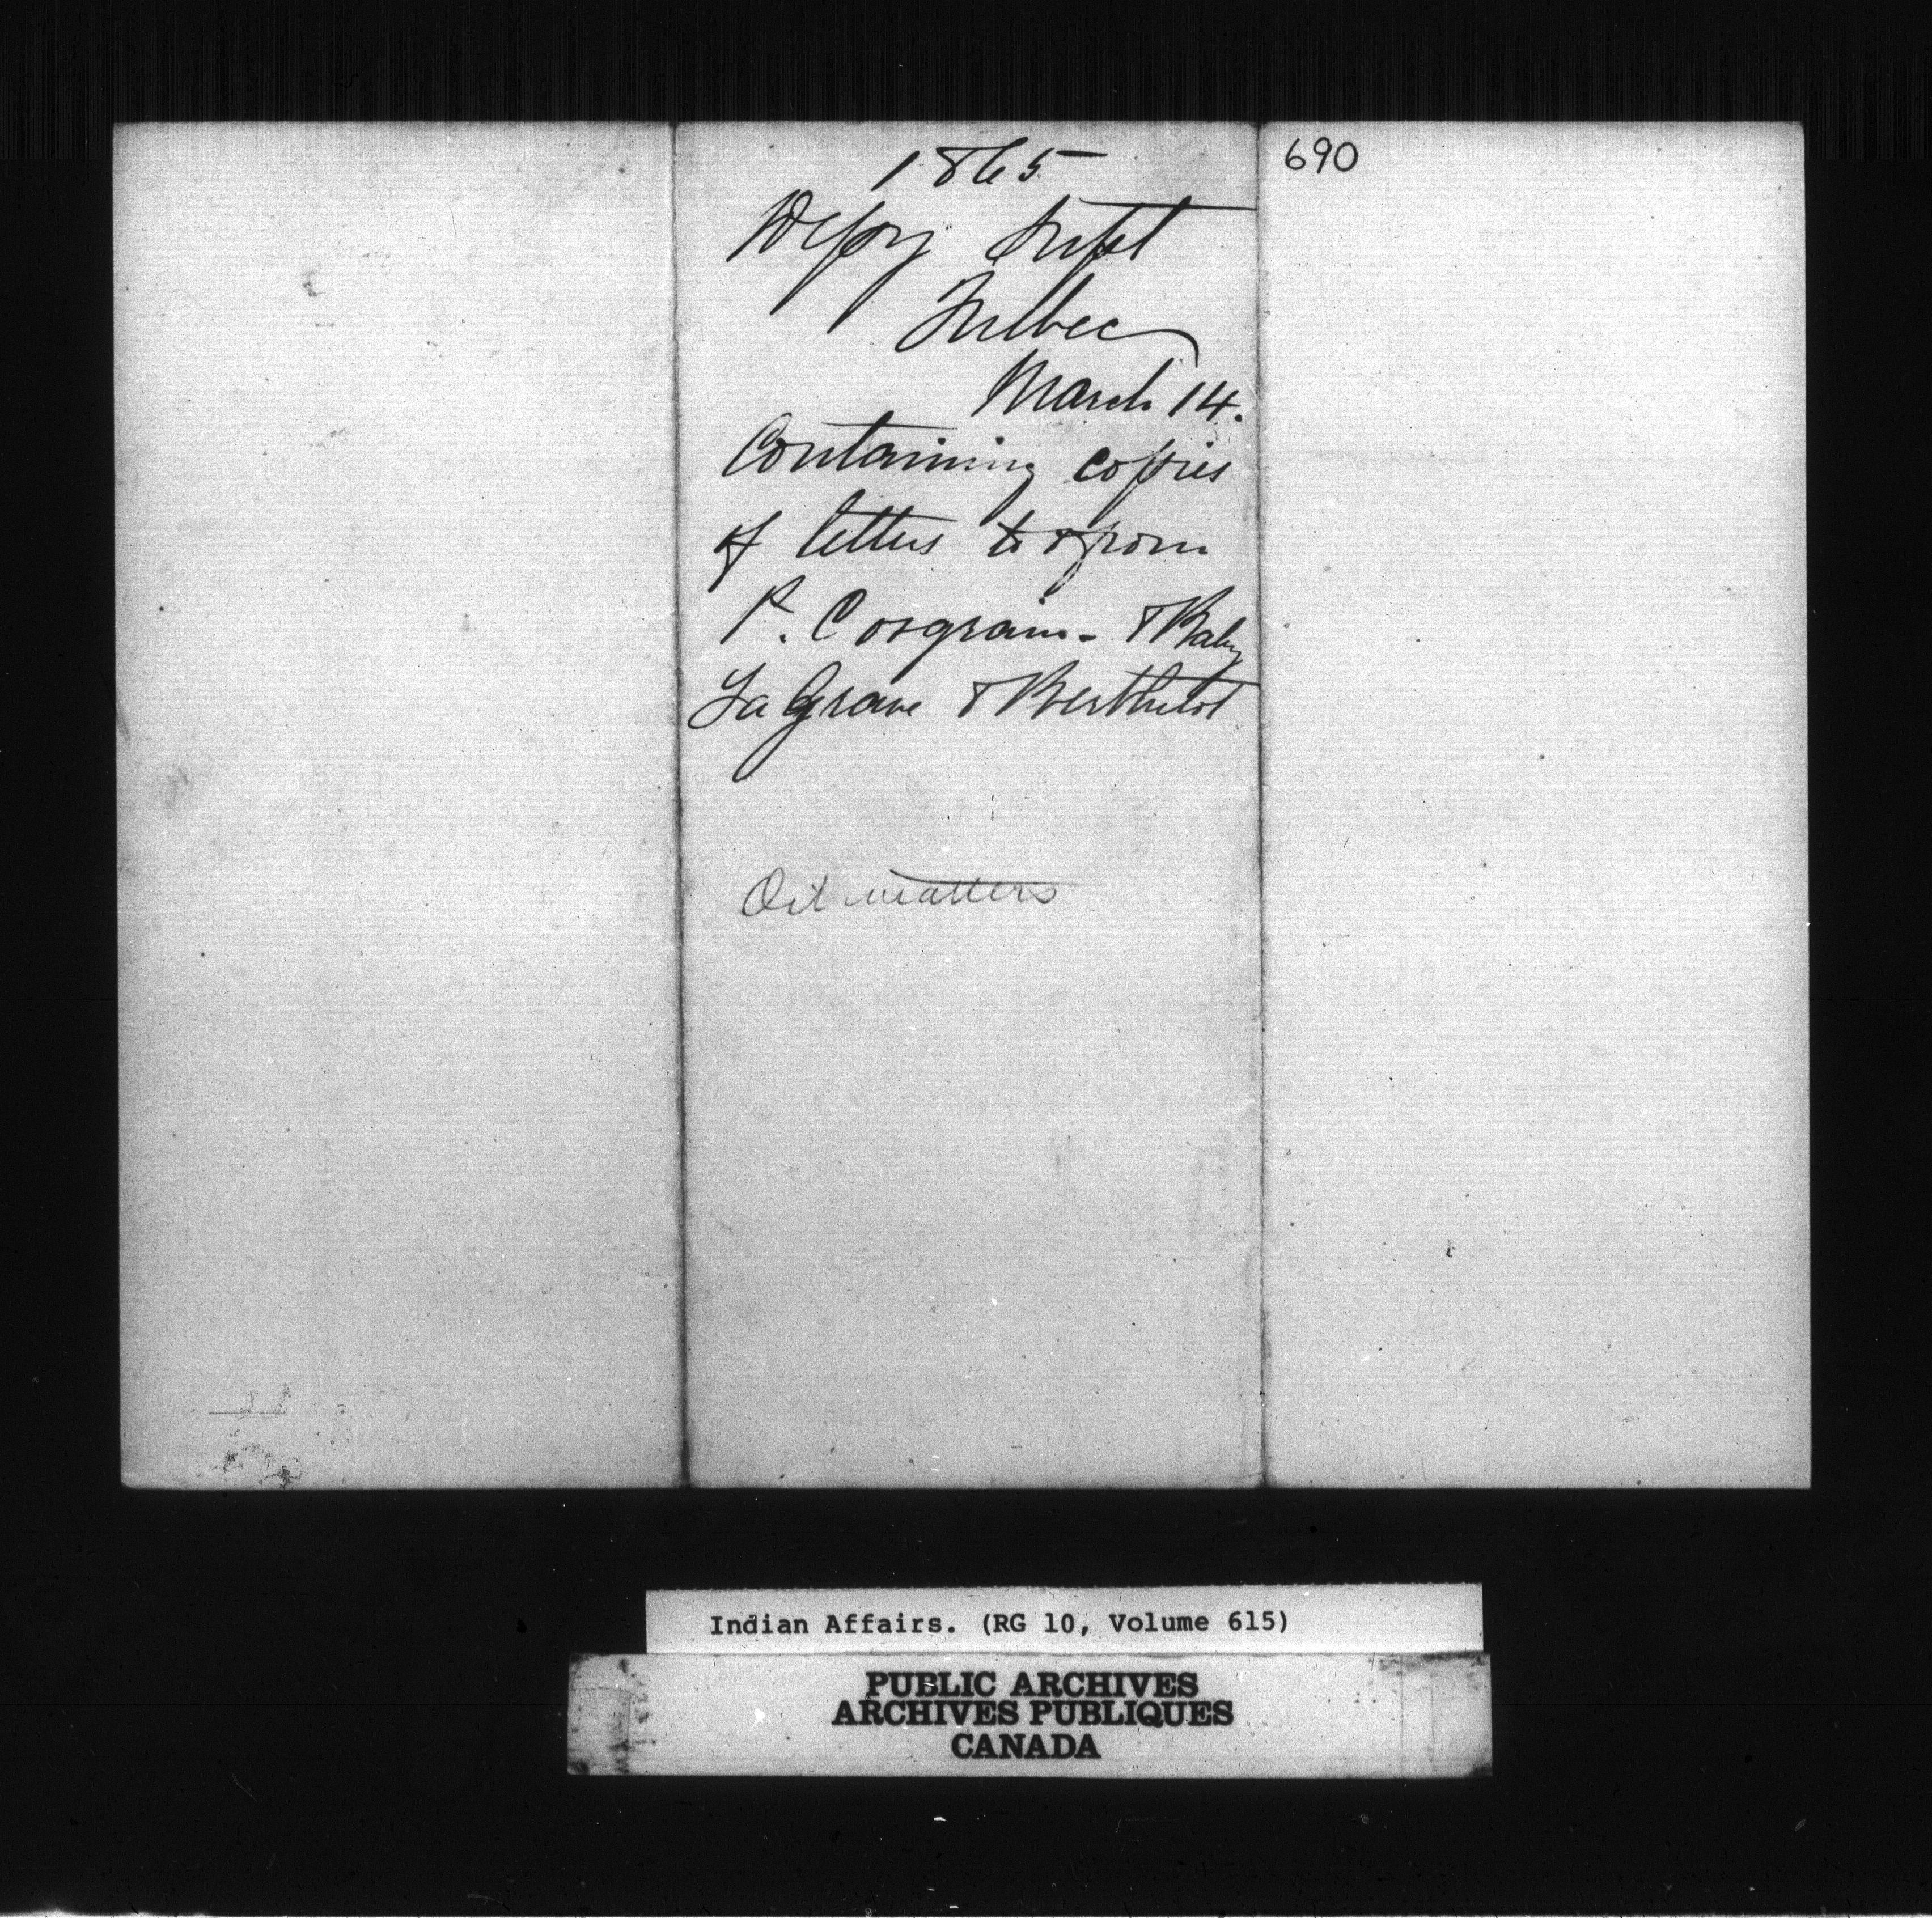 690
1865
Depy Supt
Quebec
March 14.
Containing copies
of letters to & from
P. Casgrain - & Baby
LaGrave & Berthelot
Oil matters
Indian Affairs. (RG 10, Volume 615)
PUBLIC ARCHIVES
ARCHIVES PUBLIQUES
CANADA